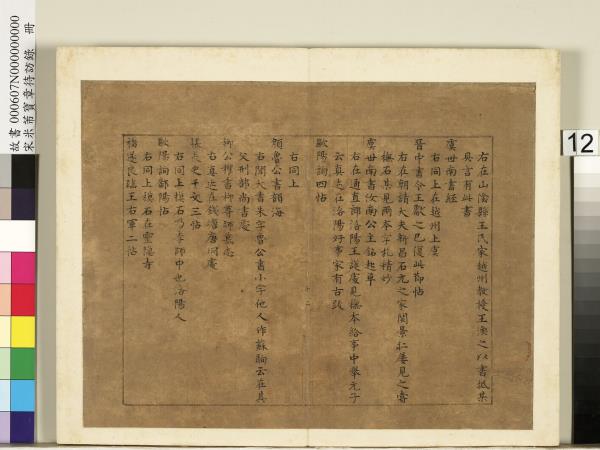 右在山陰縣王氏家越州教授王渙之以書抵某
具言有此書
虞世南書經
右同上在越州上虞
晉中書令王獻之已復此節帖
右在朝請大夫新昌石元之家閻景仁屢見之嘗
橅石甚見兩本字札精妙
虞世南書汝南公主銘起草
右在通直郎洛陽王護處見橅本給事中舉元子
云真迹在洛陽好事家有古跋
歐陽詢四帖
右同上
顏魯公書韻海
右聞大書朱字魯公書小字他人作蘇駒云在其
父刑部尚書處
柳公權書柳尊師墓志
右真迹在錢塘唐坰處
懷素千文三帖
右同上橅石乃李師中也洛陽人
歐陽詢鄱陽帖
右同上橅石在靈隱寺
褚遂良臨王右軍二帖
十二
故書 000607N000000000
宋米芾寶章待訪錄 冊
12